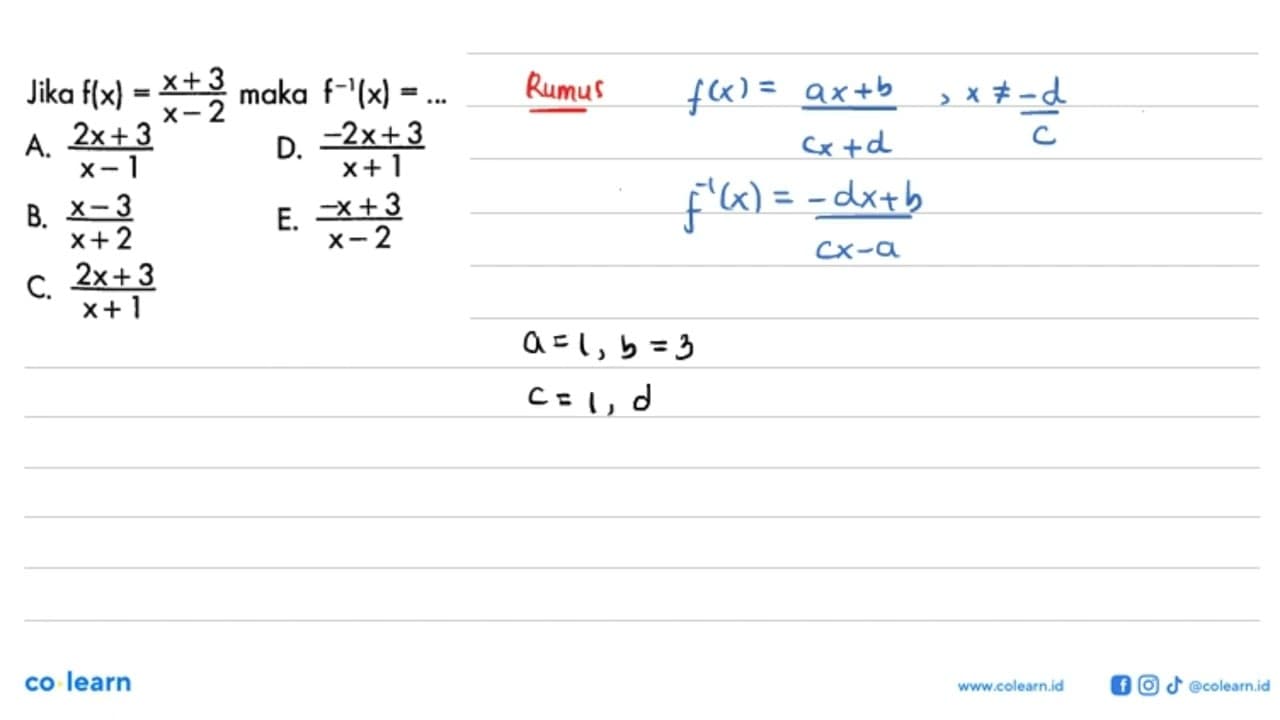 Jika f(x) = \frac{x+3}{x-2} maka f⁻¹(x) = ...
A. \frac{2x+3}{x-1}
D. \frac{-2x+3}{x+1}
B. \frac{x-3}{x+2}
E. \frac{-x+3}{x-2}
C. \frac{2x+3}{x+1}
Rumus f(x) = \frac{ax+b}{cx+d} , x ≠ \frac{-d}{c}
f⁻¹(x) = \frac{-dx+b}{cx-a}
a = 1, b = 3
c = 1, d
co·learn
www.colearn.id
@colearn.id